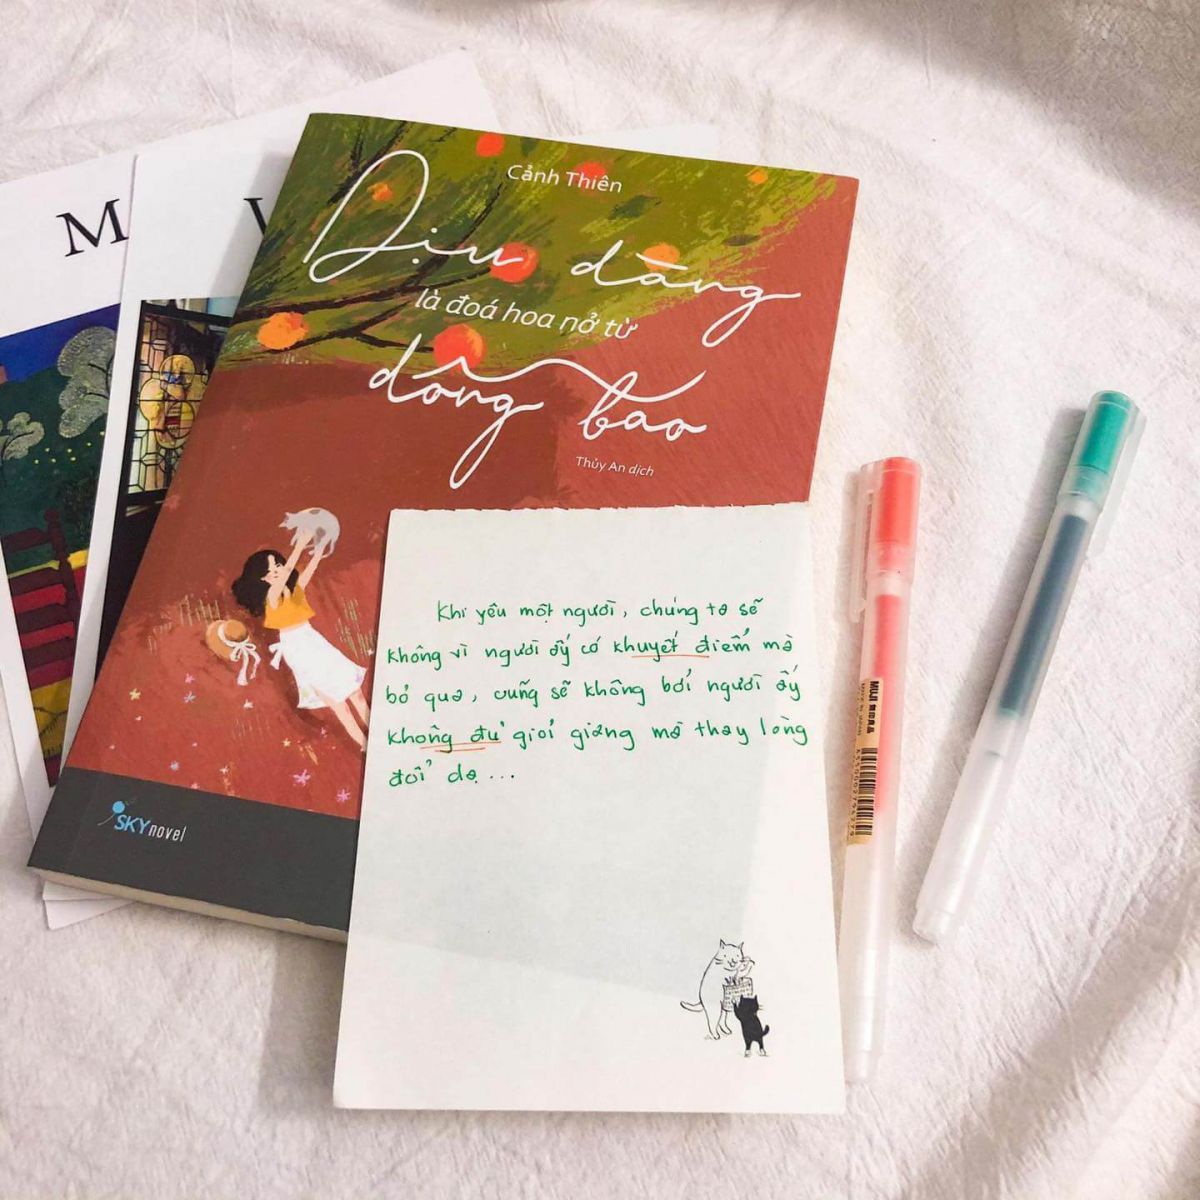 M
Cảnh Thiên
Dịu dàng
là đoá hoa nở từ
dông bão
Thủy An dịch
SKYnovel
Khi yêu một người, chúng ta sẽ
không vì người ấy có khuyết điểm mà
bỏ qua, cũng sẽ không bởi người ấy
không đủ giỏi giang mà thay lòng
đổi dạ...
MUJI 無印良品